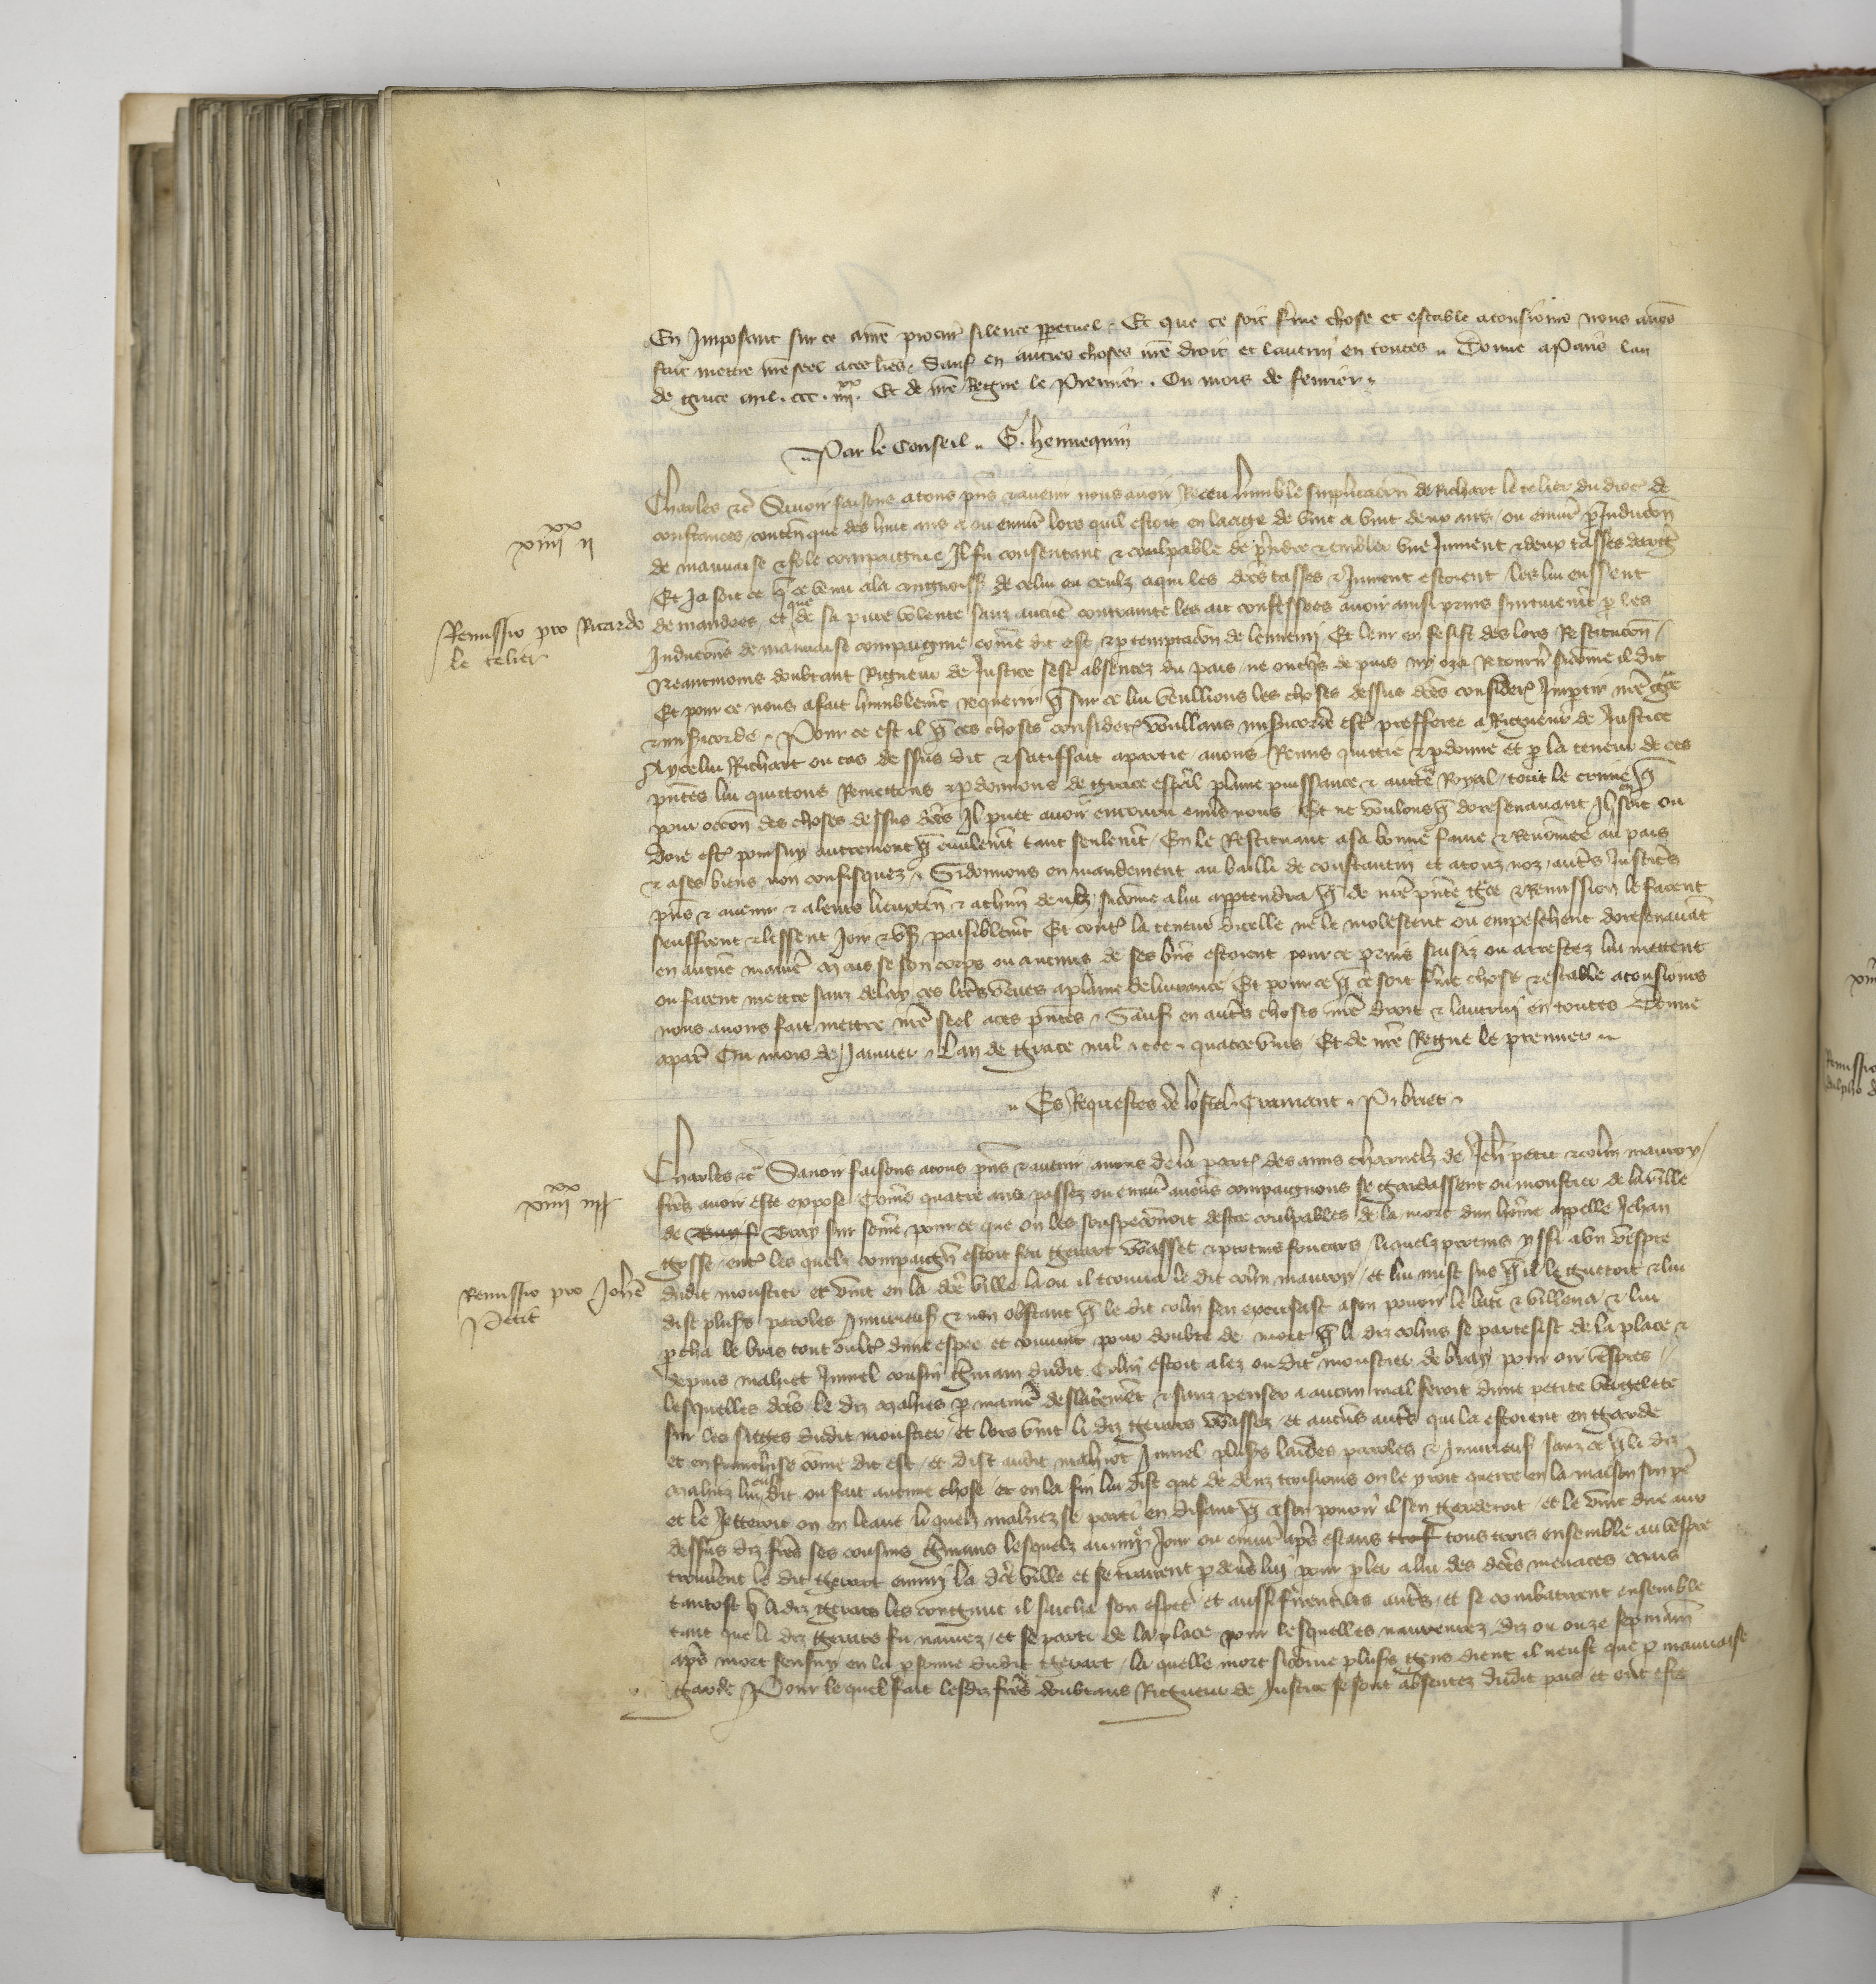 En Imposant sur ce a nre procur silence ppetuel. Et que ce soit ferme chose et estable atousiours nous avons
fait mettre nre seel a ces lres. Sauf en autres choses nre droit et lautrui en toutes. Donne a Paris lan
de grace mil. ccc. iiii xx. Et de nre Regne le Premier. Ou mois de fevrier.
Par le Conseil. G. hennequin
xiiii xx ii
Remissio pro Ricardo
le telier
Charles etc Savoir faisons a tous pns et avenir nous avoir Receu lumble supplicacion de Richart le telier du dioc de
constances contenant que des huit ans a ou environ lors quil estoit en laage de vint a vint deux ans ou environ p Induccion
de mauvaise et fole compaignie Il fu consentant et coulpable de prendre et embler une Jument et deux tasses dargent
Et Ja soit ce que ce venu a la congnoiss de celui ou ceulz a qui les dictes tasses et Jument estoient les lui eussent
demandees et que de sa pure volente sanz aucune contrainte les ait confessees avoir ainsi prins furtivement p les
Induccions de mauvaise compaignie come dit est et p temptacion de lennemi Et leur en fesist des lors Restitucion
Neantmoins doubtant Rigueur de Justice sest absentez du pais ne onques depuis ny oza Retourner sicome il dit
Et pour ce nous a fait humblement requerir que sur ce lui veullions les choses dessus dictes consider Impartir nre grace
et misericorde. Pour ce est il que ces choses consider voullans misericorde estre prefferee a Rigueur de Justice
A ycelui Richart ou cas dessus dit et satiffait a partie avons Remis quittie et pdonne et p la teneur de ces
pntes lui quittons Remettons et pdonnons de grace espal plaine puissance et auctorite Royal tout le crime que
pour occon des choses dessus dictes Il puet avoir encouru envers nous Et ne voulons que doresenavant Il en soit ou
doie estre poursuy autrement que civilement tant seulement En le Restituant a sa bonne fame et Renomee au pais
et a ses biens non confisquez. Si donnons en mandement au bailli de constantin et a touz noz autres Justiciers
pns et avenir et a leurs lieuxten et a chun deulz sicome a lui appartendra que de nre pnte grace et Remission le facent
seuffrent et lessent Joir et user paisiblement Et contre la teneur dicelle ne le molestent ou empeschent doresenavant
en aucune maniere Mais se son corps ou aucuns de ses biens estoient pour ce prins saisiz ou arrestez lui mettent
ou facent mettre sanz delay ces lres veues a plaine delivrance Et pour ce que ce soit ferme chose et estable a tousiours
nous avons fait mettre nre seel a ces pntes. Sauf en autres choses nre droit et lautrui en toutes Donne
a paris Ou mois de Janvier. Lan de grace mil. ccc. quatrevins Et de nre Regne le premier
Es Requestes de lostel. Tramant. P. briet
xiiii xx iii
Remissio pro Johne
Petit
Charles etc Savoir faisons a tous pns et avenir avons de la partie des amis charnelz de Jeh petit et colin mauroy
freres avoir este expose Come quatre ans passez ou environ aucuns compaignons se gardassent ou moustier de la ville
de Bray sur some pour ce que on les souspeconnoit destre coulpables de la mort dun home appelle Jehan
gosse entre les quelz compaignons estoit feu gerart wasset et protins foucars liquelz protins yssi a un vespre
dudit moustier et vint en la dicte ville la ou il trouva le dit colin mauroy et lui mist sus que il le guettoit et lui
dist pluss paroles Injurieuses et non obstant que le dit colin sen excusast a son pouoir le bati et villena et lui
percha le bras tout oultre dune espee et convint pour doubte de mort que li diz colins se partesist de la place et
depuis mahiet Jumel cousin germain dudit Colin estoit alez ou dit moustier de bray pour oir vespres
lesquelles dictes le diz mahiés p maniere desbatement et sanz penser a aucun mal feroit dune petite vergelette
sur les sieges dudit moustier et lors vint li diz gerars wassez et aucuns autres qui la estoient en garde
et en franchise come dit est et dist audit mahiet Jumel pluss laides paroles et Injurieuses sanz ce que li diz
mahiez lui eust dit ou fait aucune chose et en la fin lui dist que de deuz troisiours on le yroit querre en la maison son pere
et le Jetteroit on en leaue li quelz mahiez se parti en disant que a son pouoir il sen garderoit et le vint dire aux
dessus diz freres ses cousins germains lesquelz Jour ou environ apres estans tous trois ensemble au vespre
trouverent le dit gerart emmy la dicte ville et se traierent p devers lui pour pler a lui des dictes menaces mais
tantost que li diz gerars les congnut il sacha son espee et aussi firent les autres et se combatirent ensemble
tant que li diz gerars fu navrez et se parti de la place pour lesquelles navreurez dix ou onze sepmaines
apres mort sensuy en la psonne dudit gerart la quelle mort sicome pluss gens dient il neust que p mauvaise
garde Pour lequel fait lesdiz freres doubtans Rigueur de Justice se sont absentez dudit pais et ont este